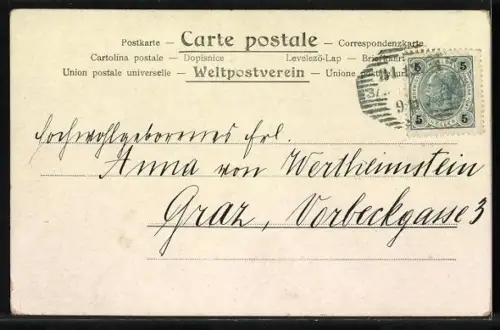 Postkarte — Carte postale — Correspondenzkarte
Cartolina postale — Dopisnice Levelező-Lap — Briefkaart
Union postale universelle — Weltpostverein — Unione postale
5 5
5 5
Hochwohlgebornes Frl.
Anna von Wertheimstein
Graz, Vorbeckgasse 3